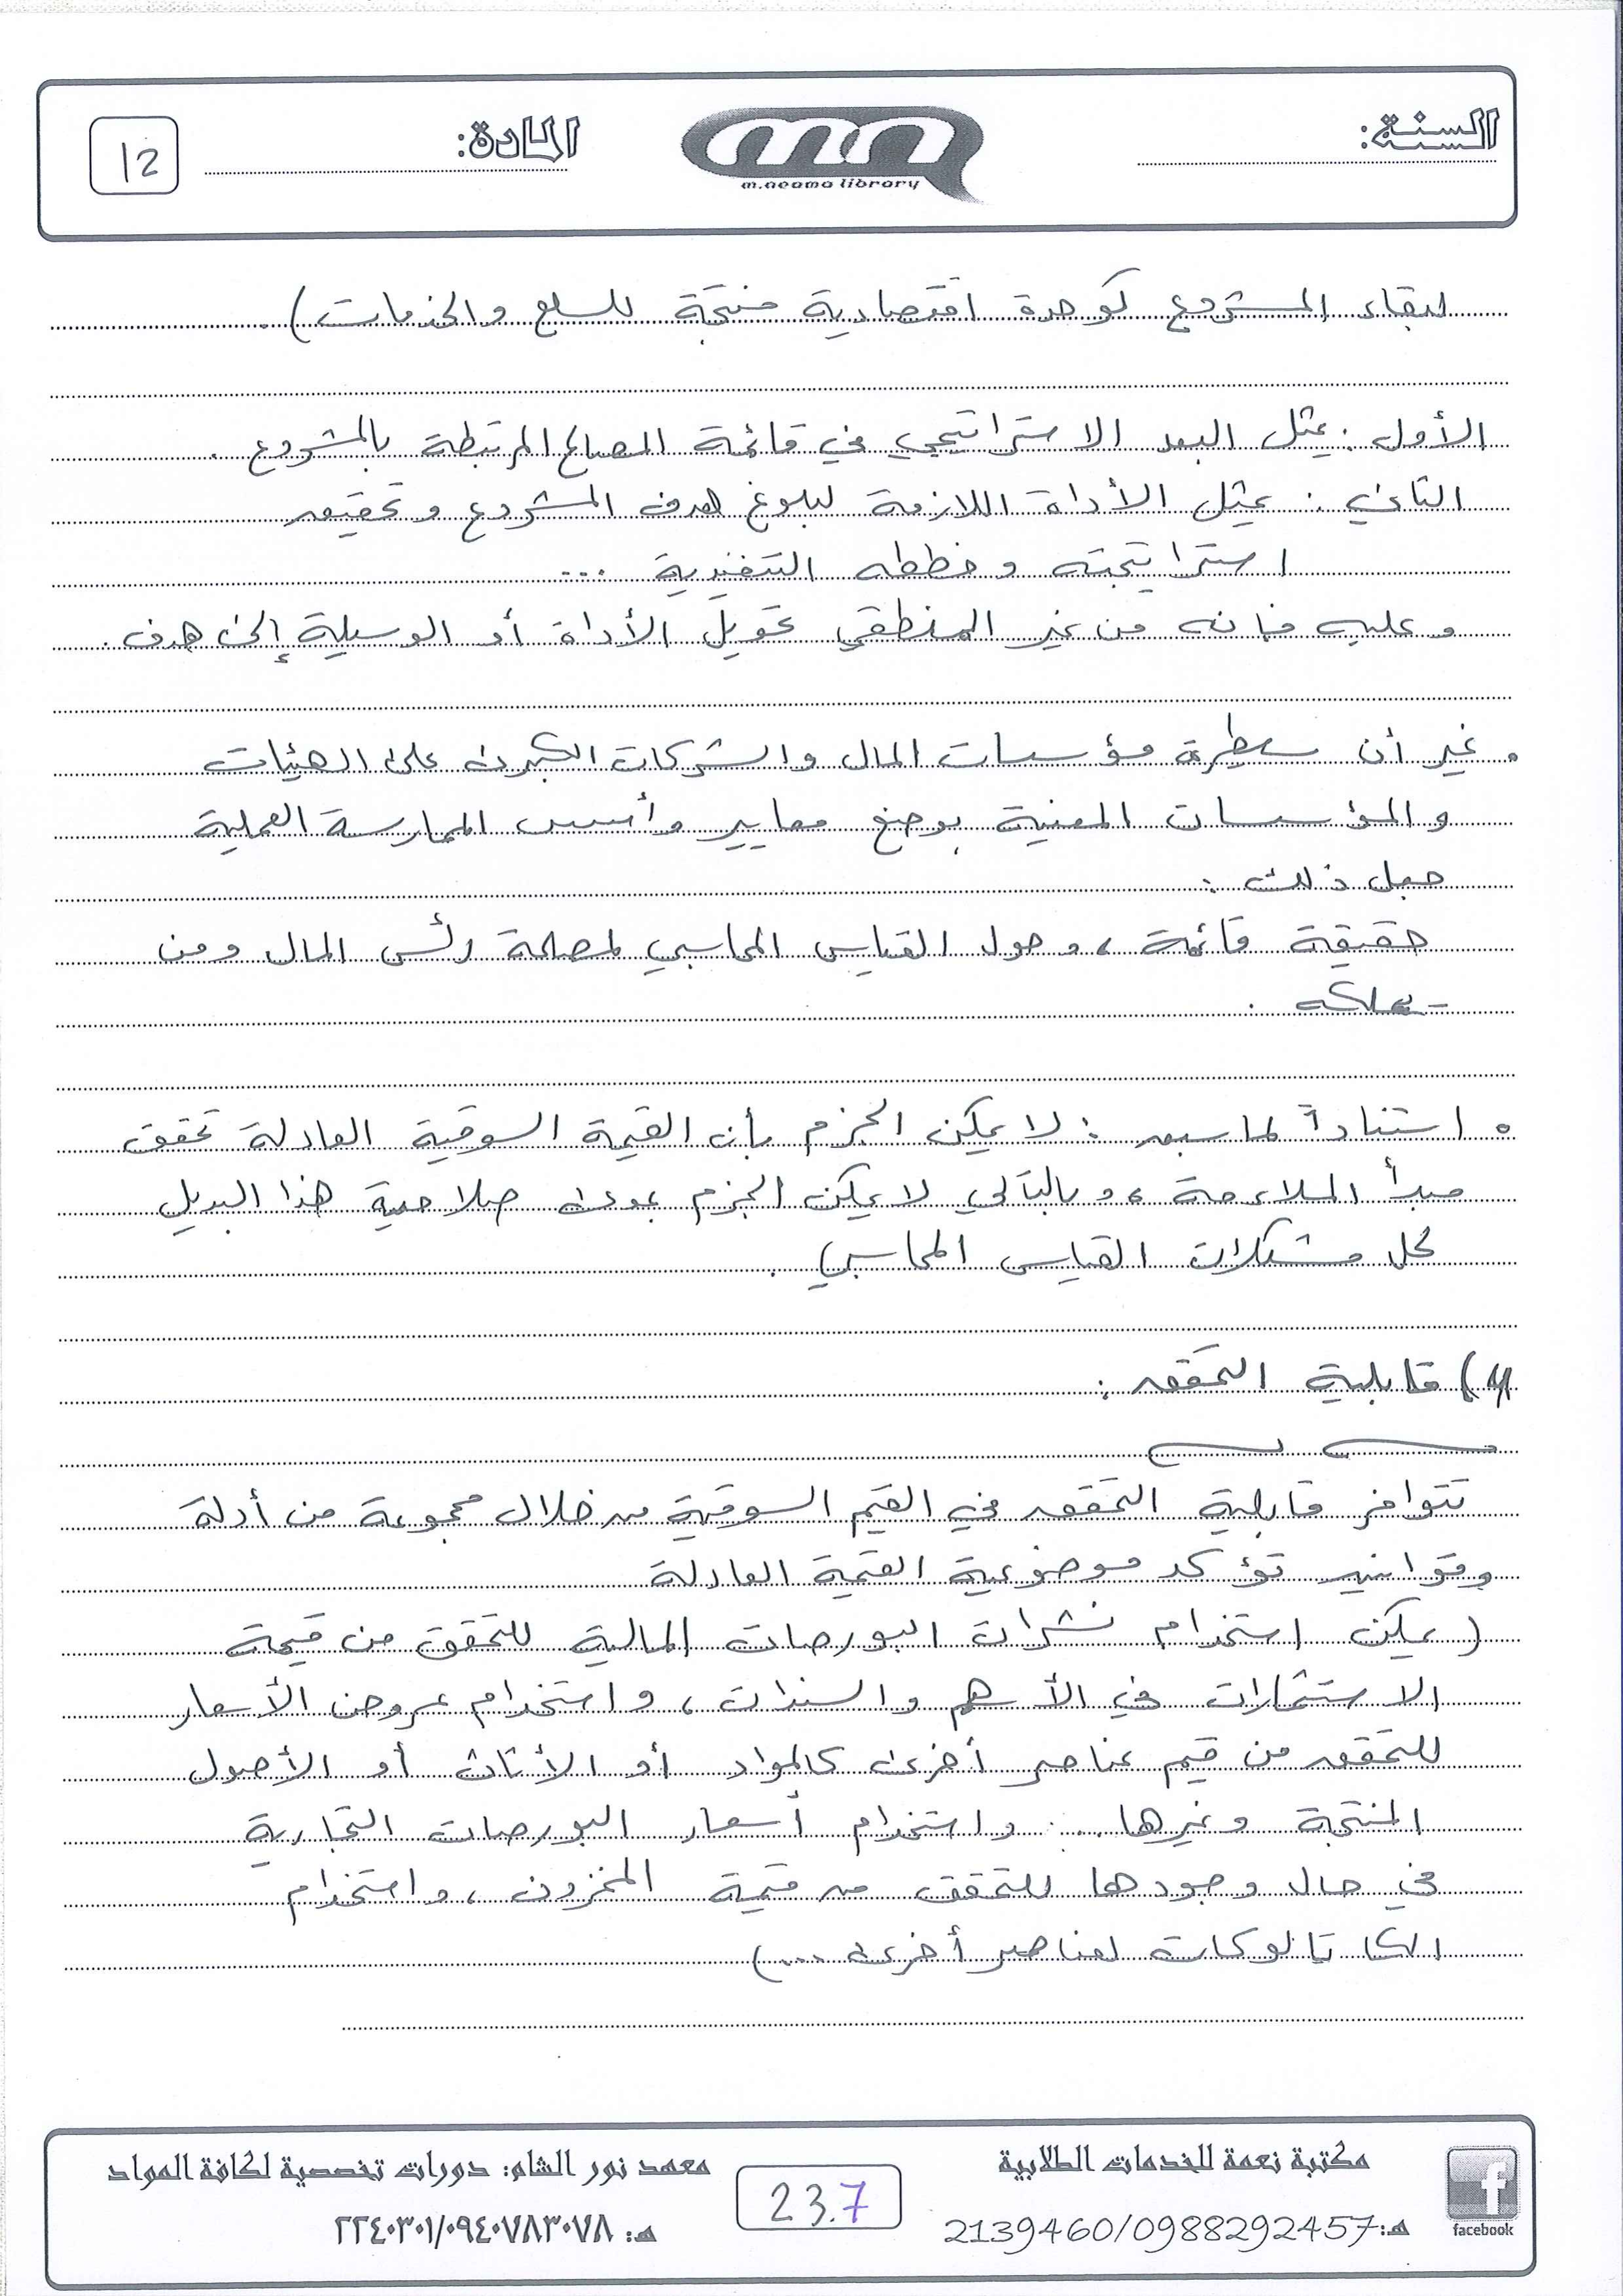 السنة:
m.neama library
المادة:
12
لبقاء المشروع كوحدة اقتصادية منتجة للسلع والخدمات).
الأول: يمثل البعد الاستراتيجي في قائمة المصالح المرتبطة بالمشروع.
الثاني: يمثل الأداة اللازمة لبلوغ هدف المشروع وتحقيق
استراتيجيته وخططه التنفيذية ...
وعليه فإنه من غير المنطقي تحويل الأداة أو الوسيلة إلى هدف.
. غير أن سيطرة مؤسسات المال والشركات الكبرى على الهيئات
والمؤسسات المعنية بوضع معايير وأسس الممارسة العملية
جعل ذلك:
حقيقة قائمة، وحول القياس المحاسبي لمصلحة رأس المال ومن
يملكه.
• استناداً لما سبق: لا يمكن الجزم بأن القيمة السوقية العادلة تحقق
مبدأ الملاءمة، وبالتالي لا يمكن الجزم بمدى صلاحية هذا البديل
لحل مشكلات القياس المحاسبي.
4) قابلية التحقق:
تتوافر قابلية التحقق في القيم السوقية من خلال مجموعة من أدلة
وقوانين تؤكد موضوعية القيمة العادلة
(يمكن استخدام نشرات البورصات المالية للتحقق من قيمة
الاستثمارات في الأسهم والسندات، واستخدام عروض الأسعار
للتحقق من قيم عناصر أخرى كالمواد أو الأثاث أو الأصول
المنتجة وغيرها... واستخدام أسعار البورصات التجارية
في حال وجودها للتحقق من قيمة المخزون، واستخدام
الكاتالوكات لعناصر أخرى ...)
مكتبة نعمة للخدمات الطلابية
هـ: 2139460/0988292457
facebook
23.7
معهد نور الشام: دورات تخصصية لكافة المواد
هـ: ٢٢٤٠٣٠١/٠٩٤٠٧٨٣٠٧٨